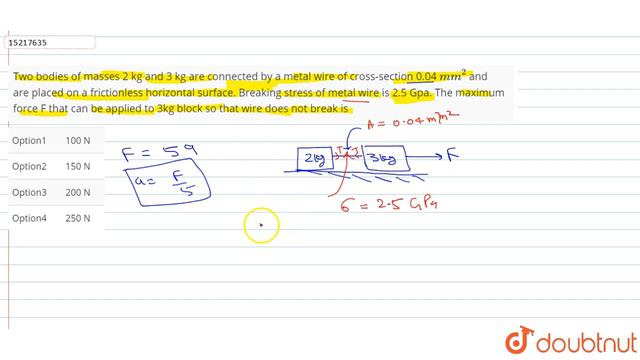 15217635
Two bodies of masses 2 kg and 3 kg are connected by a metal wire of cross-section 0.04 mm² and
are placed on a frictionless horizontal surface. Breaking stress of metal wire is 2.5 Gpa. The maximum
force F that can be applied to 3kg block so that wire does not break is
A = 0.04 mm²
Option1 100 N
Option2 150 N
Option3 200 N
Option4 250 N
F = 5a
a = F/5
2kg T T 3kg F
σ = 2.5 GPa
doubtnut